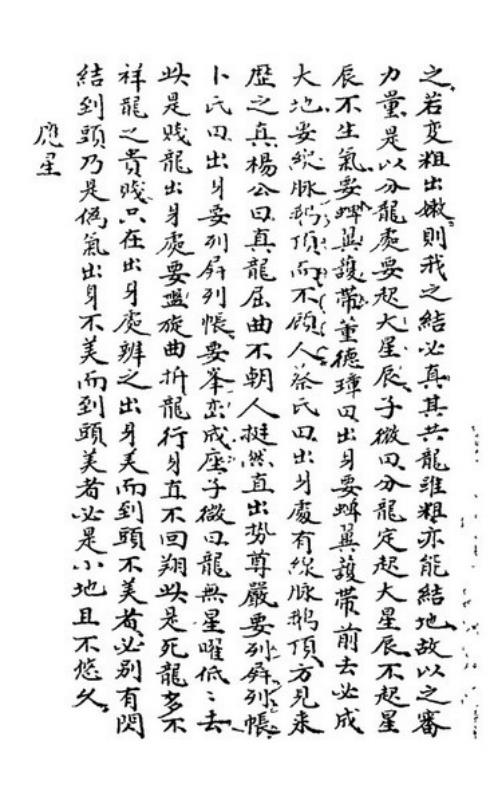 之若变粗出嫩則我之結必真其共龍雖粗亦能結地故以之審
力量是以分龍處要起大星辰子微曰分龍定起大星辰不起星
辰不生氣要蟬翼護帶董德璋曰出身要蟬翼護帶前去必成
大地要線脉鵝頂而不顧人蔡氏曰出身處有線脉鵝頂方見来
歴之真楊公曰真龍屈曲不朝人挺然直出势尊嚴要列屏列帳
卜氏曰出身要列屏列帳要峯巒成座子微曰龍無星曜低〻去
此是賎龍出身處要盤旋曲折龍行身直不回翔此是死龍多不
祥龍之貴賎只在出身處辨之出身美而到頭不美者必别有閃
結到頭乃是偽氣出身不美而到頭美者必是小地且不悠久
應星